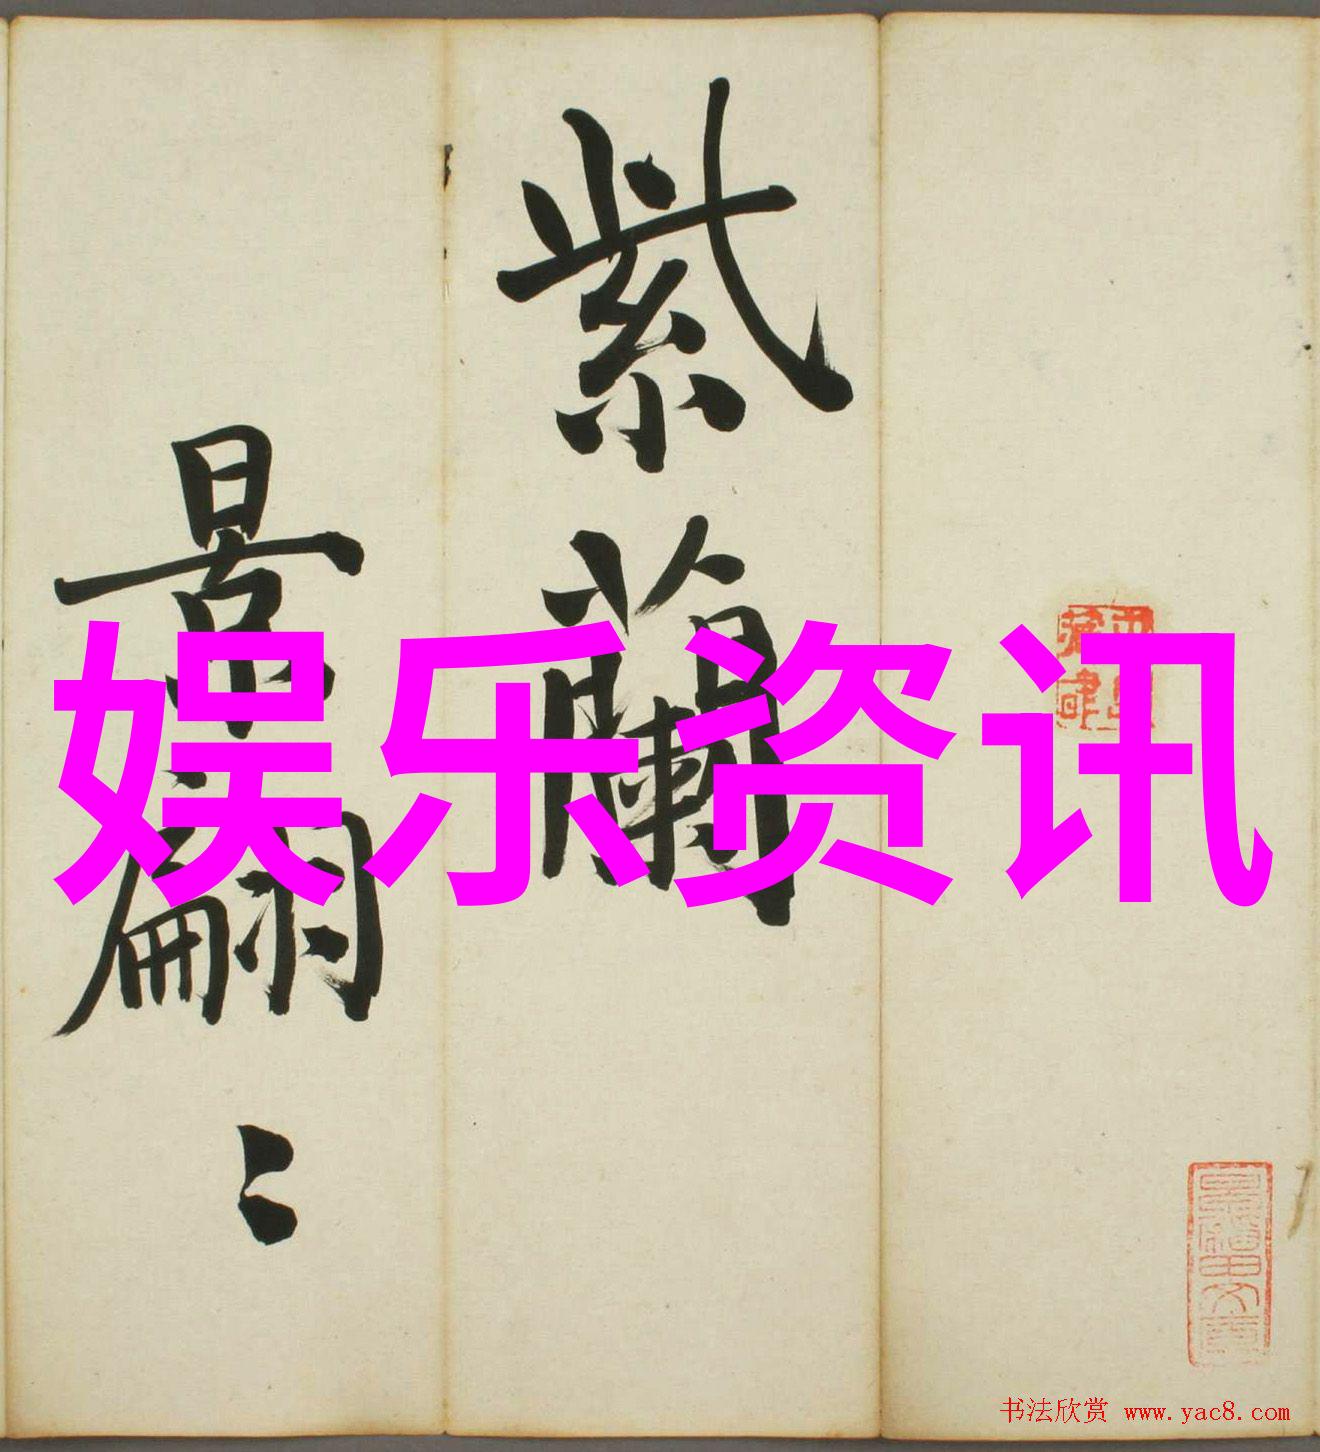 紫蘭
景翩〻
娱乐资讯
书法欣赏 www.yac8.com